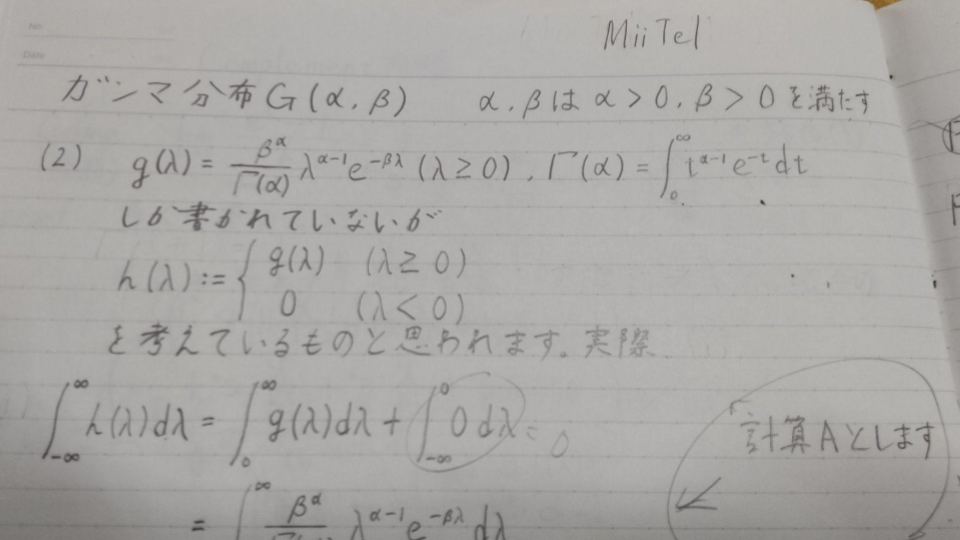 No.
Date
MiiTel
ガンマ分布 G(α, β) α, βは α > 0, β > 0 を満たす
(2) g(λ) = β^α/Γ(α) λ^{α-1} e^{-βλ} (λ ≥ 0), Γ(α) = ∫_0^∞ t^{α-1} e^{-t} dt
しか書かれていないが
h(λ) := { g(λ) (λ ≥ 0)
0 (λ < 0)
を考えているものと思われます。実際
∫_{-∞}^∞ h(λ)dλ = ∫_0^∞ g(λ)dλ + ∫_{-∞}^0 0 dλ = 0
「計算Aとします
= ∫^∞ β^α λ^{α-1} e^{-βλ} dλ